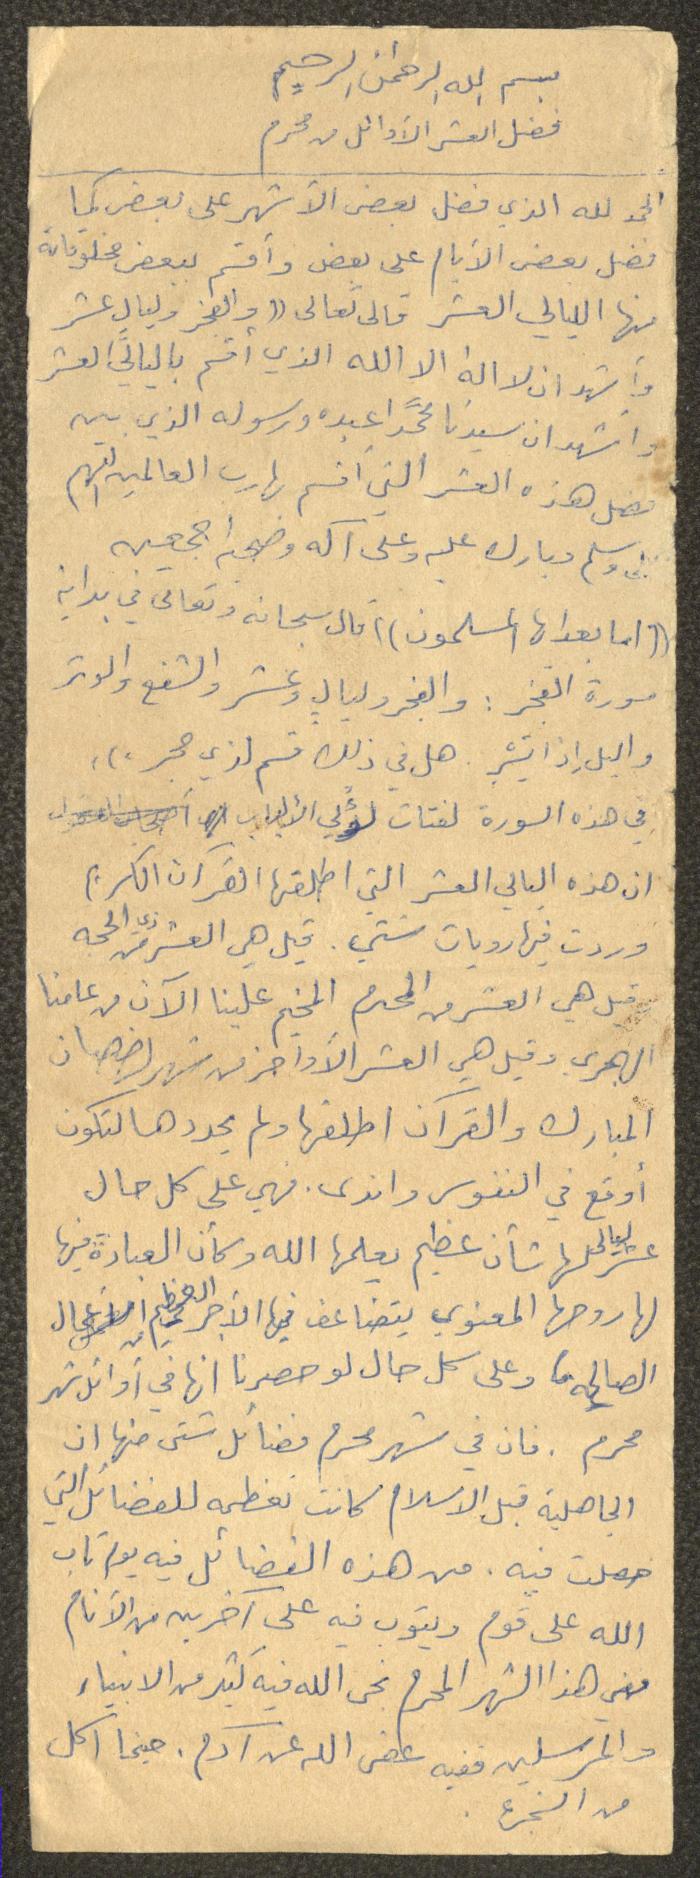 بسم الله الرحمن الرحيم
فضل العشر الأوائل من محرم
الحمد لله الذي فضل بعض الأشهر على بعض كما
فضل بعض الأيام على بعض وأقسم ببعض مخلوقاته
منها الليالي العشر قال تعالى (( والفجر وليال عشر
وأشهد ان لا اله الا الله الذي أقسم بالياليَّ العشر
وأشهد ان سيدنا محمَّداً عبده ورسوله الذي بين
فضل هذه العشر التي أقسم بها رب العالمين اللهم
صلى وسلم وبارك عليه وعلى آله وصحبه أجمعين
(( اما بعد ايها المسلمون )) قال سبحانه وتعالى في بداية
سورة الفجر : والفجر وليالٍ وعشر والشفع والوتر
واليل إذا يسر . هل في ذلك قسم لذي حجر . ))
في هذه السورة لفتات لؤلي الألباب
ان هذه اليالي العشر التي اطلقها القرآن الكريم
وردت فيها رويات شتي . قيل هي العشر من ذي الحجه
وقيل هي العشر من المحرم المخيم علينا الآن من عامنا
الهجري وقيل هي العشر الأواخر من شهر رمضان
المبارك والقرآن اطلقها ولم يحددها لتكون
أوقع في النفوس واندى . فهي على كل حال
عشر ليالي لها شأن عظيم يعلمها الله وكأن العبادة فيها
لها روحها المعنوي يتضاعف فيها الأجر العظيم من الأعمال
الصالحه وعلى كل حال لو حصرنا انها في أوائل شهر
محرم . فان في شهر محرم فضائل شتى منها ان
الجاهلية قبل الاسلام كانت تعظمه للفضائل التي
حصلت فيه . من هذه الفضائل فيه يوم تاب
الله على قوم ويتوب فيه على آخرين من الأنام
ففي هذا الشهر المحرم نجى الله فيه كثير من الانبياء
والمرسلين ففيه عفى الله عن آدم . حينما أكل
من الشجرة .